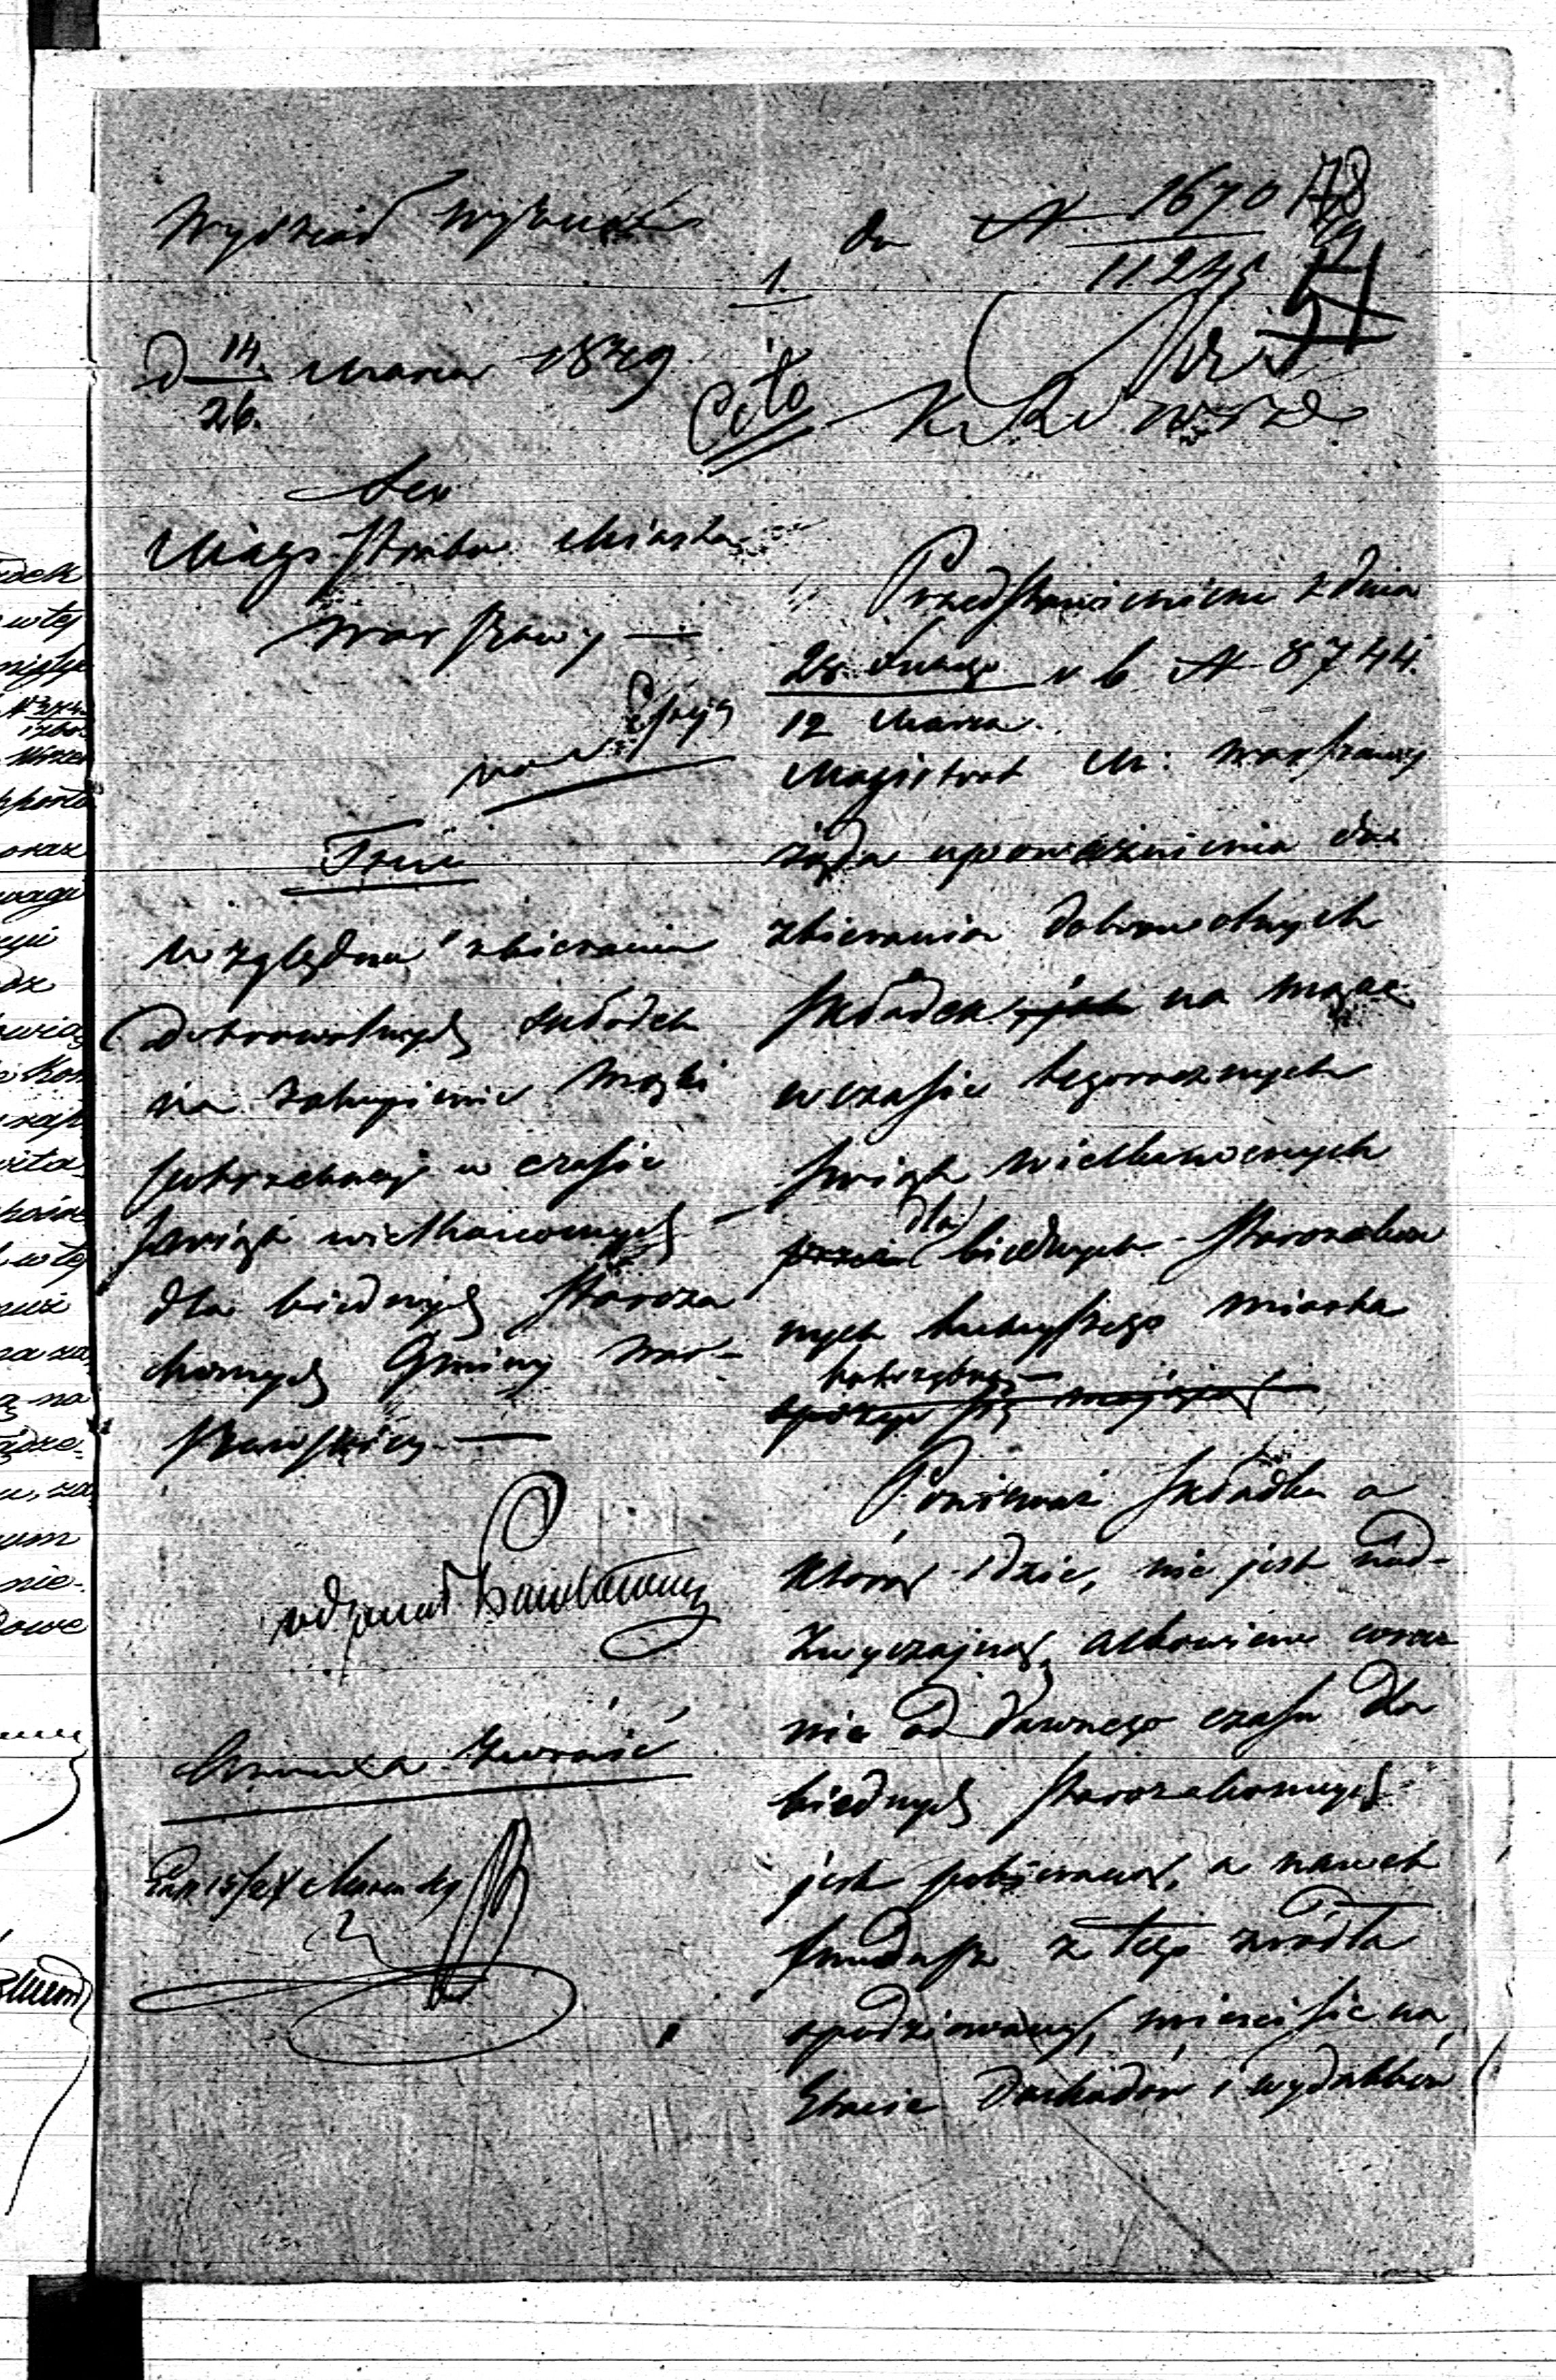 Wydział Wyznań
do N 1670
11245
1.
d 14/26 Marca 1849.
Cito
Do
Magistratu Miasta
Warszawy —
Treść
względem zbierania
dobrowolnych składek
na zakupienie mąki
potrzebnej w czasie
świąt wielkanocnych
dla biednych staroza
konnych Gminy War-
szawskiej —
Przedstawieniem z dnia
28 Lutego
12 Marca r b N 8744.
Magistrat M: Warszawy
żąda upoważnienia do
zbierania dobrowolnych
składek na mącę
w czasie tegorocznych
świąt Wielkanocnych
dla biednych starozakon
nych tutejszego miasta
potrzebną —
Ponieważ składka o
którą idzie, nie jest nad-
zwyczajną, albowiem coro
nie od dawnego czasu dla
biednych starozakonnych
jest pobieraną, a nawet
fundusz z tego źródła
spodziewany, mieści się na
Etacie dochodów i wydatków